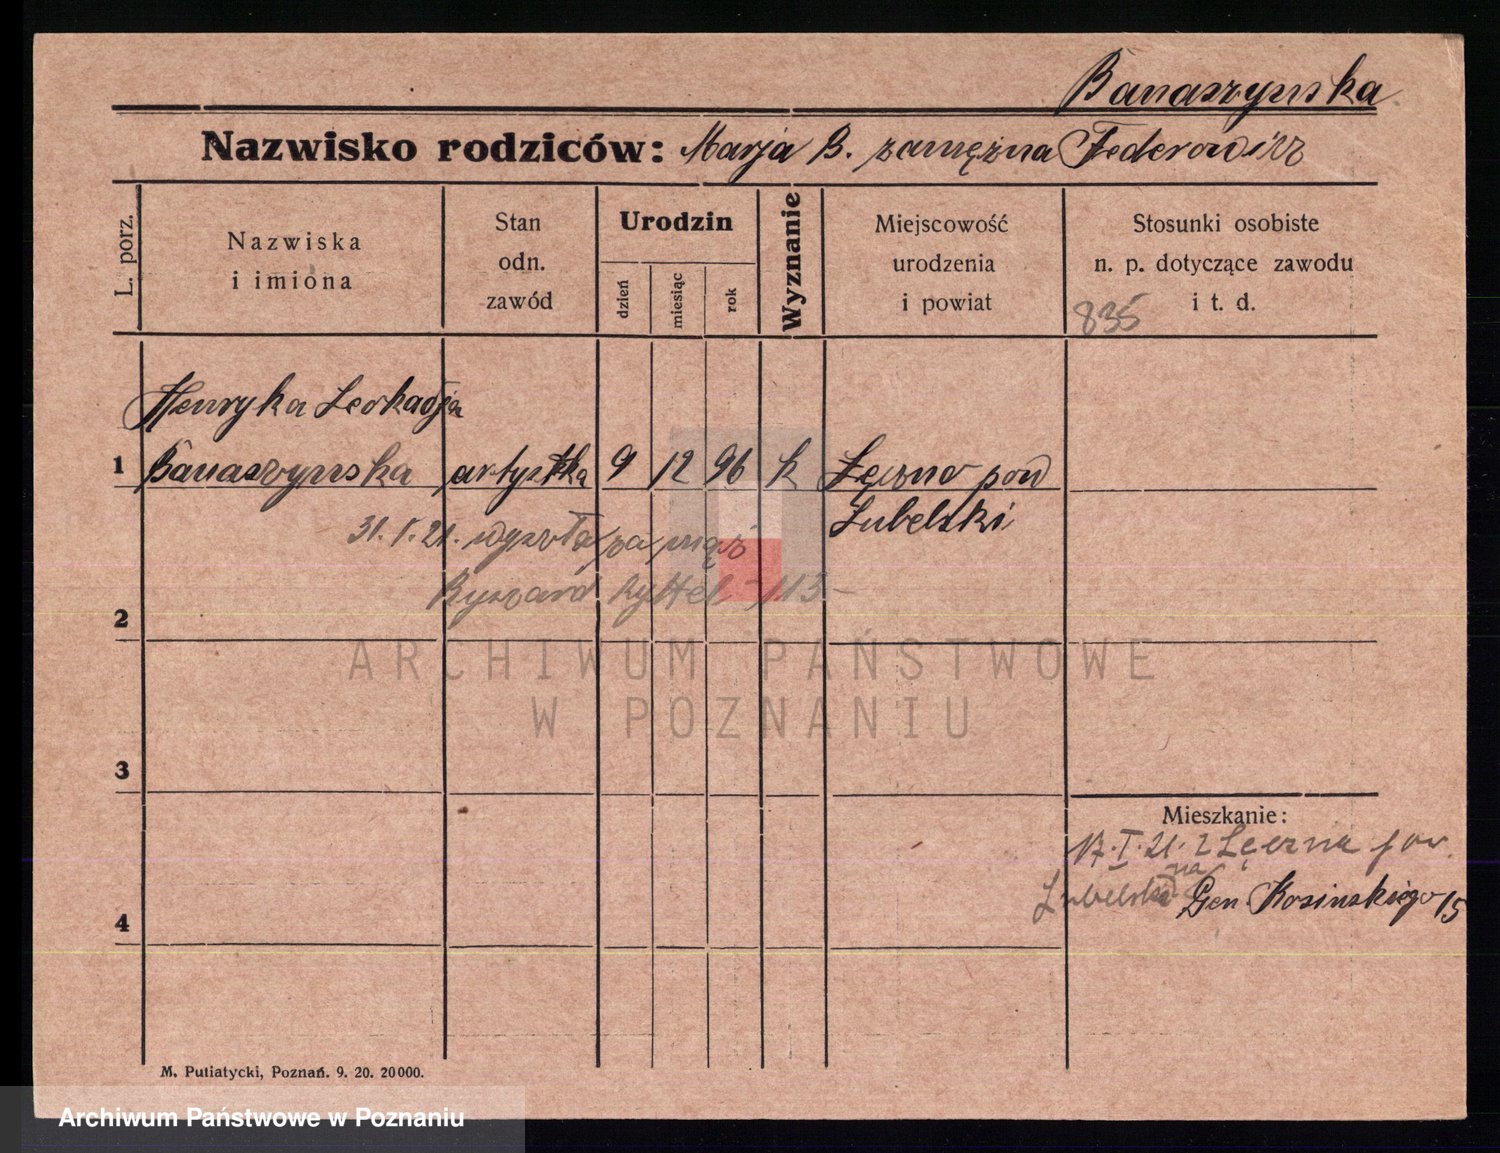 Banaszynska
Nazwisko rodziców: Marja B. zamężna Federowicz
L. porz.
Nazwiska
i imiona
Stan
odn.
zawód
Urodzin
dzień
miesiąc
rok
Wyznanie
Miejscowość
urodzenia
i powiat
Stosunki osobiste
n. p. dotyczące zawodu
i t. d.
835
Henryka Leokadja
1 Banaszynska artystka 9 12 96 k Łęczno pow
Lubelski
31. I. 21. wyszła za mąż
Ryszard Ryttel - 113 -
2
ARCHIWUM PAŃSTWOWE
W POZNANIU
3
Mieszkanie:
17. I. 21. z Łęczna pow.
Lubelski na Gen Kosinskiego 15
4
M. Putiatycki, Poznań. 9. 20. 20000.
Archiwum Państwowe w Poznaniu